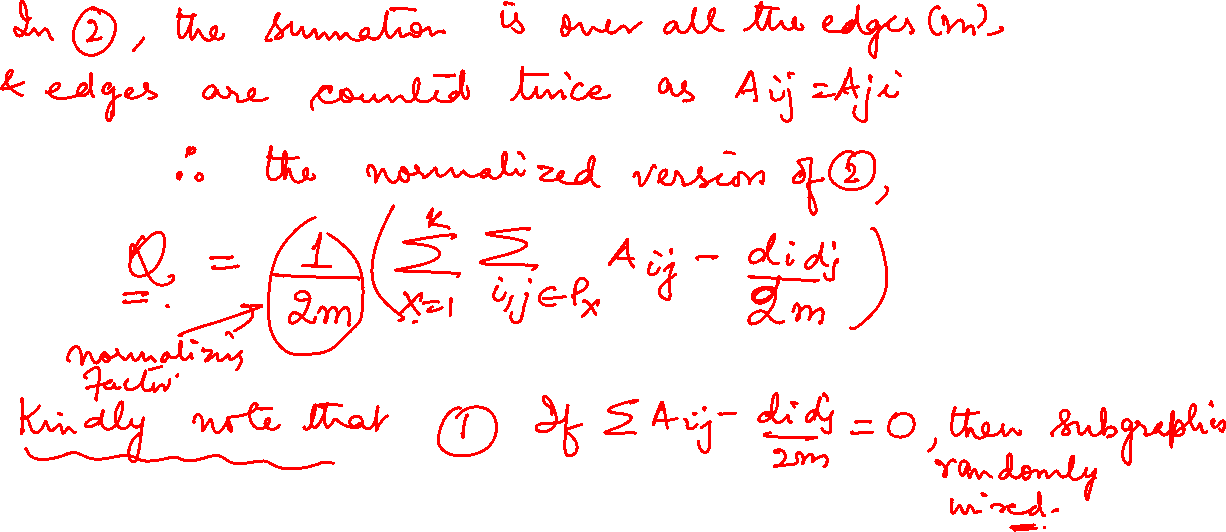 In ②, the summation is over all the edges (m),
& edges are counted twice as Aij = Aji
∴ the normalized version of ②,
Q = (1/2m) ( ∑_{x=1}^{k} ∑_{i,j ∈ P_x} A_ij - d_i d_j / 2m )
normalizing
factor.
Kindly note that ① If ∑ A_ij - d_i d_j / 2m = 0, then subgraph is
randomly
mixed.